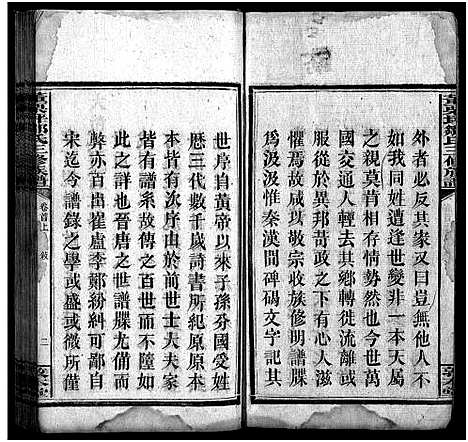 外者必反其家又曰豈無他人不
如我同姓遭逢世變非一本天屬
之親莫肯相存情勢然也今世萬
國交通人輕去其鄉轉徙流離或
懼焉旅於異邦哿政之有心人滋
用慽然咸以敬宗收族修明譜牒
為汲汲惟秦漢間碑碣文字記其
世序自黃帝以來子孫分國受姓
歷三代數千歲詩書所紀原原本
皆有次序由於前世士大夫家
皆有譜系故傳之百世而不墮如
此之詳也晉唐之世譜牒尤備而
弊亦百出崔盧李鄭紛糾可鄙而
宋迄今譜錄之學或盛或微所僅
鄒氏三修族譜
卷首上
二